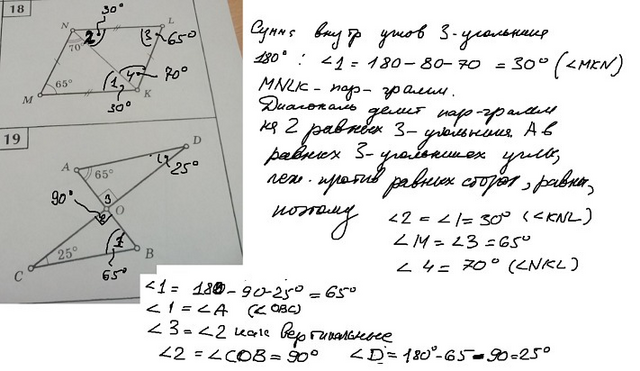 18
30°
N
L
2
3
65°
70°
4
70°
65°
1
M
K
30°
Сумма внутр углов 3-угольника
180° : ∠1 = 180 - 80 - 70 = 30° (∠MKN)
MNLK - пар-грамм.
Диагональ делит пар-грамм
на 2 равных 3-угольника А в
равных 3-угольниках углы,
леж. против равных сторон, равны,
поэтому
∠2 = ∠1 = 30° (∠KNL)
∠M = ∠3 = 65°
∠4 = 70° (∠NKL)
19
D
A
65°
25°
90°
3
O
2
1
B
C
25°
65°
∠1 = 180 - 90 - 25° = 65°
∠1 = ∠A (∠OBC)
∠3 = ∠2 как вертикальные
∠2 = ∠COB = 90° ∠D = 180° - 65 - 90 = 25°